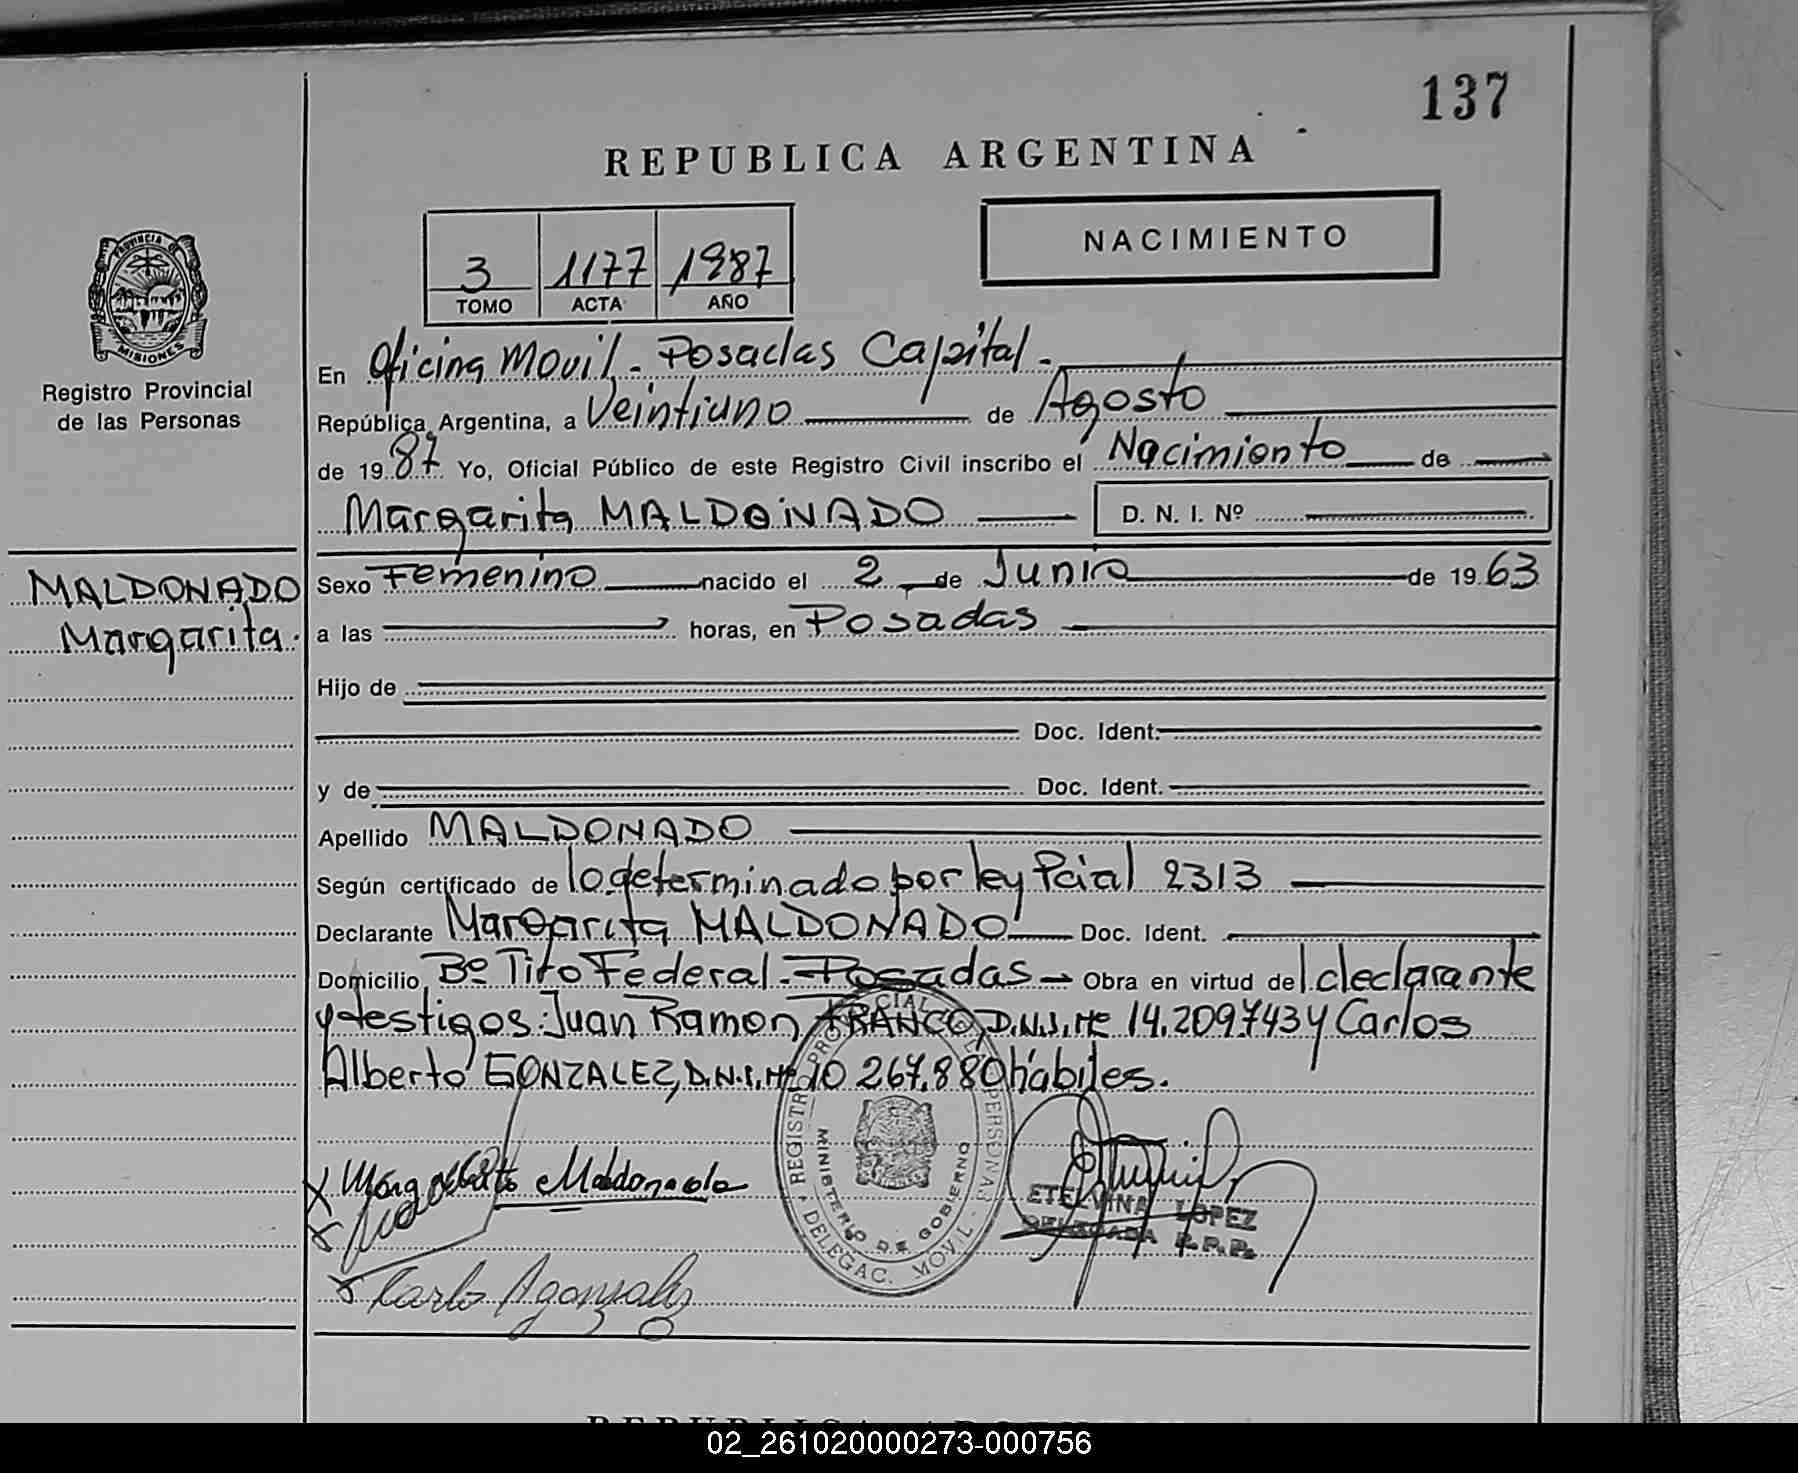 137
REPUBLICA ARGENTINA
NACIMIENTO
3 1177 1987
TOMO ACTA AÑO
PROVINCIA DE MISIONES
Registro Provincial
de las Personas
MALDONADO
Margarita.
En Oficina Movil - Posadas Capital -
República Argentina, a Veintiuno de Agosto
de 1987 Yo, Oficial Público de este Registro Civil inscribo el Nacimiento de
Margarita MALDONADO D. N. I. Nº
Sexo Femenino nacido el 2 de Junio de 1963
a las horas, en Posadas
Hijo de
Doc. Ident.
y de Doc. Ident.
Apellido MALDONADO
Según certificado de lo determinado por ley Pcial 2313
Declarante Margarita MALDONADO Doc. Ident.
Domicilio Bº Tiro Federal - Posadas - Obra en virtud del declarante
y testigos: Juan Ramon FRANCO, D.N.I. Nº 14.209.743 y Carlos
Alberto GONZALEZ, D.N.I. Nº 10 267.880 hábiles.
REGISTRO PROVINCIAL DE LAS PERSONAS
MINISTERIO DE GOBIERNO
DELEGAC. MOVIL
Maldonado
ETELVINA LOPEZ
DELEGADA R.P.P.
Karlo A gonzalez
REPUBLICA ARGENTINA
02_261020000273-000756